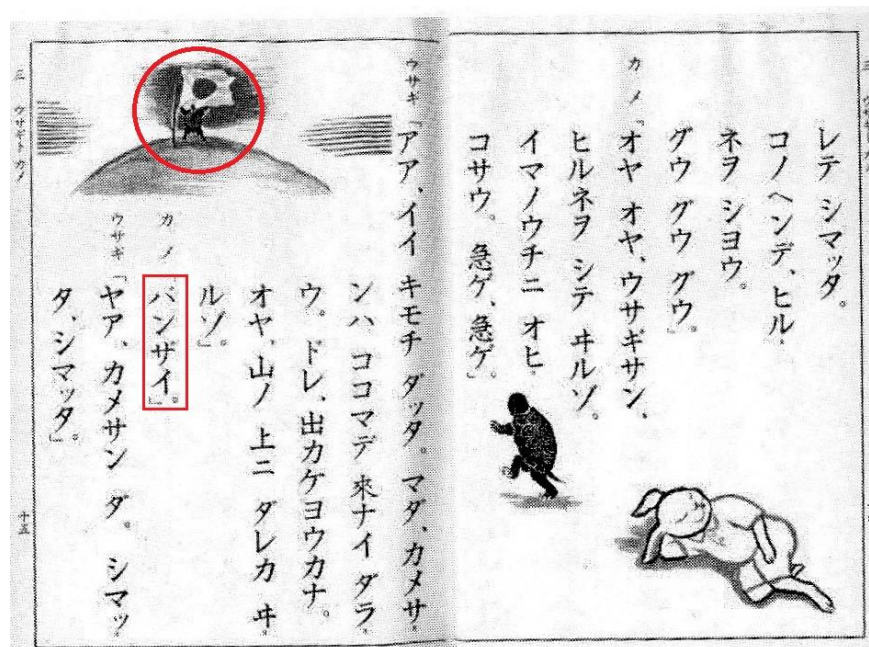 レテ シマッタ。
コノヘンデ、ヒル
ネヲ シヨウ。
グウ グウ グウ」
カメ「オヤ オヤ、ウサギサン、
ヒルネヲ シテ ヰルゾ。
イマノウチニ オヒ
コサウ。 急ゲ、急ゲ」
ウサギ「アア、イイ キモチ ダッタ。 マダ、カメサ
ンハ ココマデ 來ナイ ダラ
ウ。 ドレ、出カケヨウカナ。
オヤ、山ノ 上ニ ダレカ ヰ
ルゾ」。
カメ バンザイ」。
ウサギ「ヤア、カメサン ダ。 シマッ
タ、シマッタ」。
三 ウサギト カメ
十五